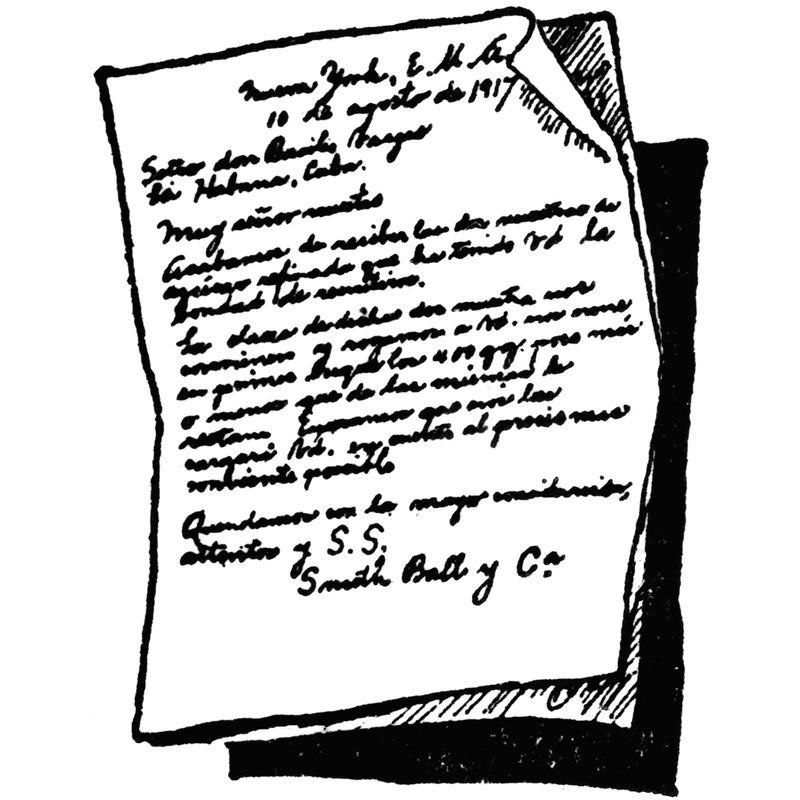 Nueva York, E. U. A.
10 de agosto de 1917
Señor don Basilio Vargas
La Habana, Cuba.
Muy señor nuestro
Acabamos de recibir las dos muestras de
azúcar refinada que ha tenido Vd. la
bondad de remitirnos.
La clase de dicha dos muestra nos
conviene y rogamos a Vd. nos
su primer buque los 400 qq. poco más
o menos que de las mismas le
restan. Esperamos que nos las
cargará Vd. en cuenta al precio mas
conviente posible
Quedamos con la mayor consideración,
atentos y S. S.
Smith Ball y Cª